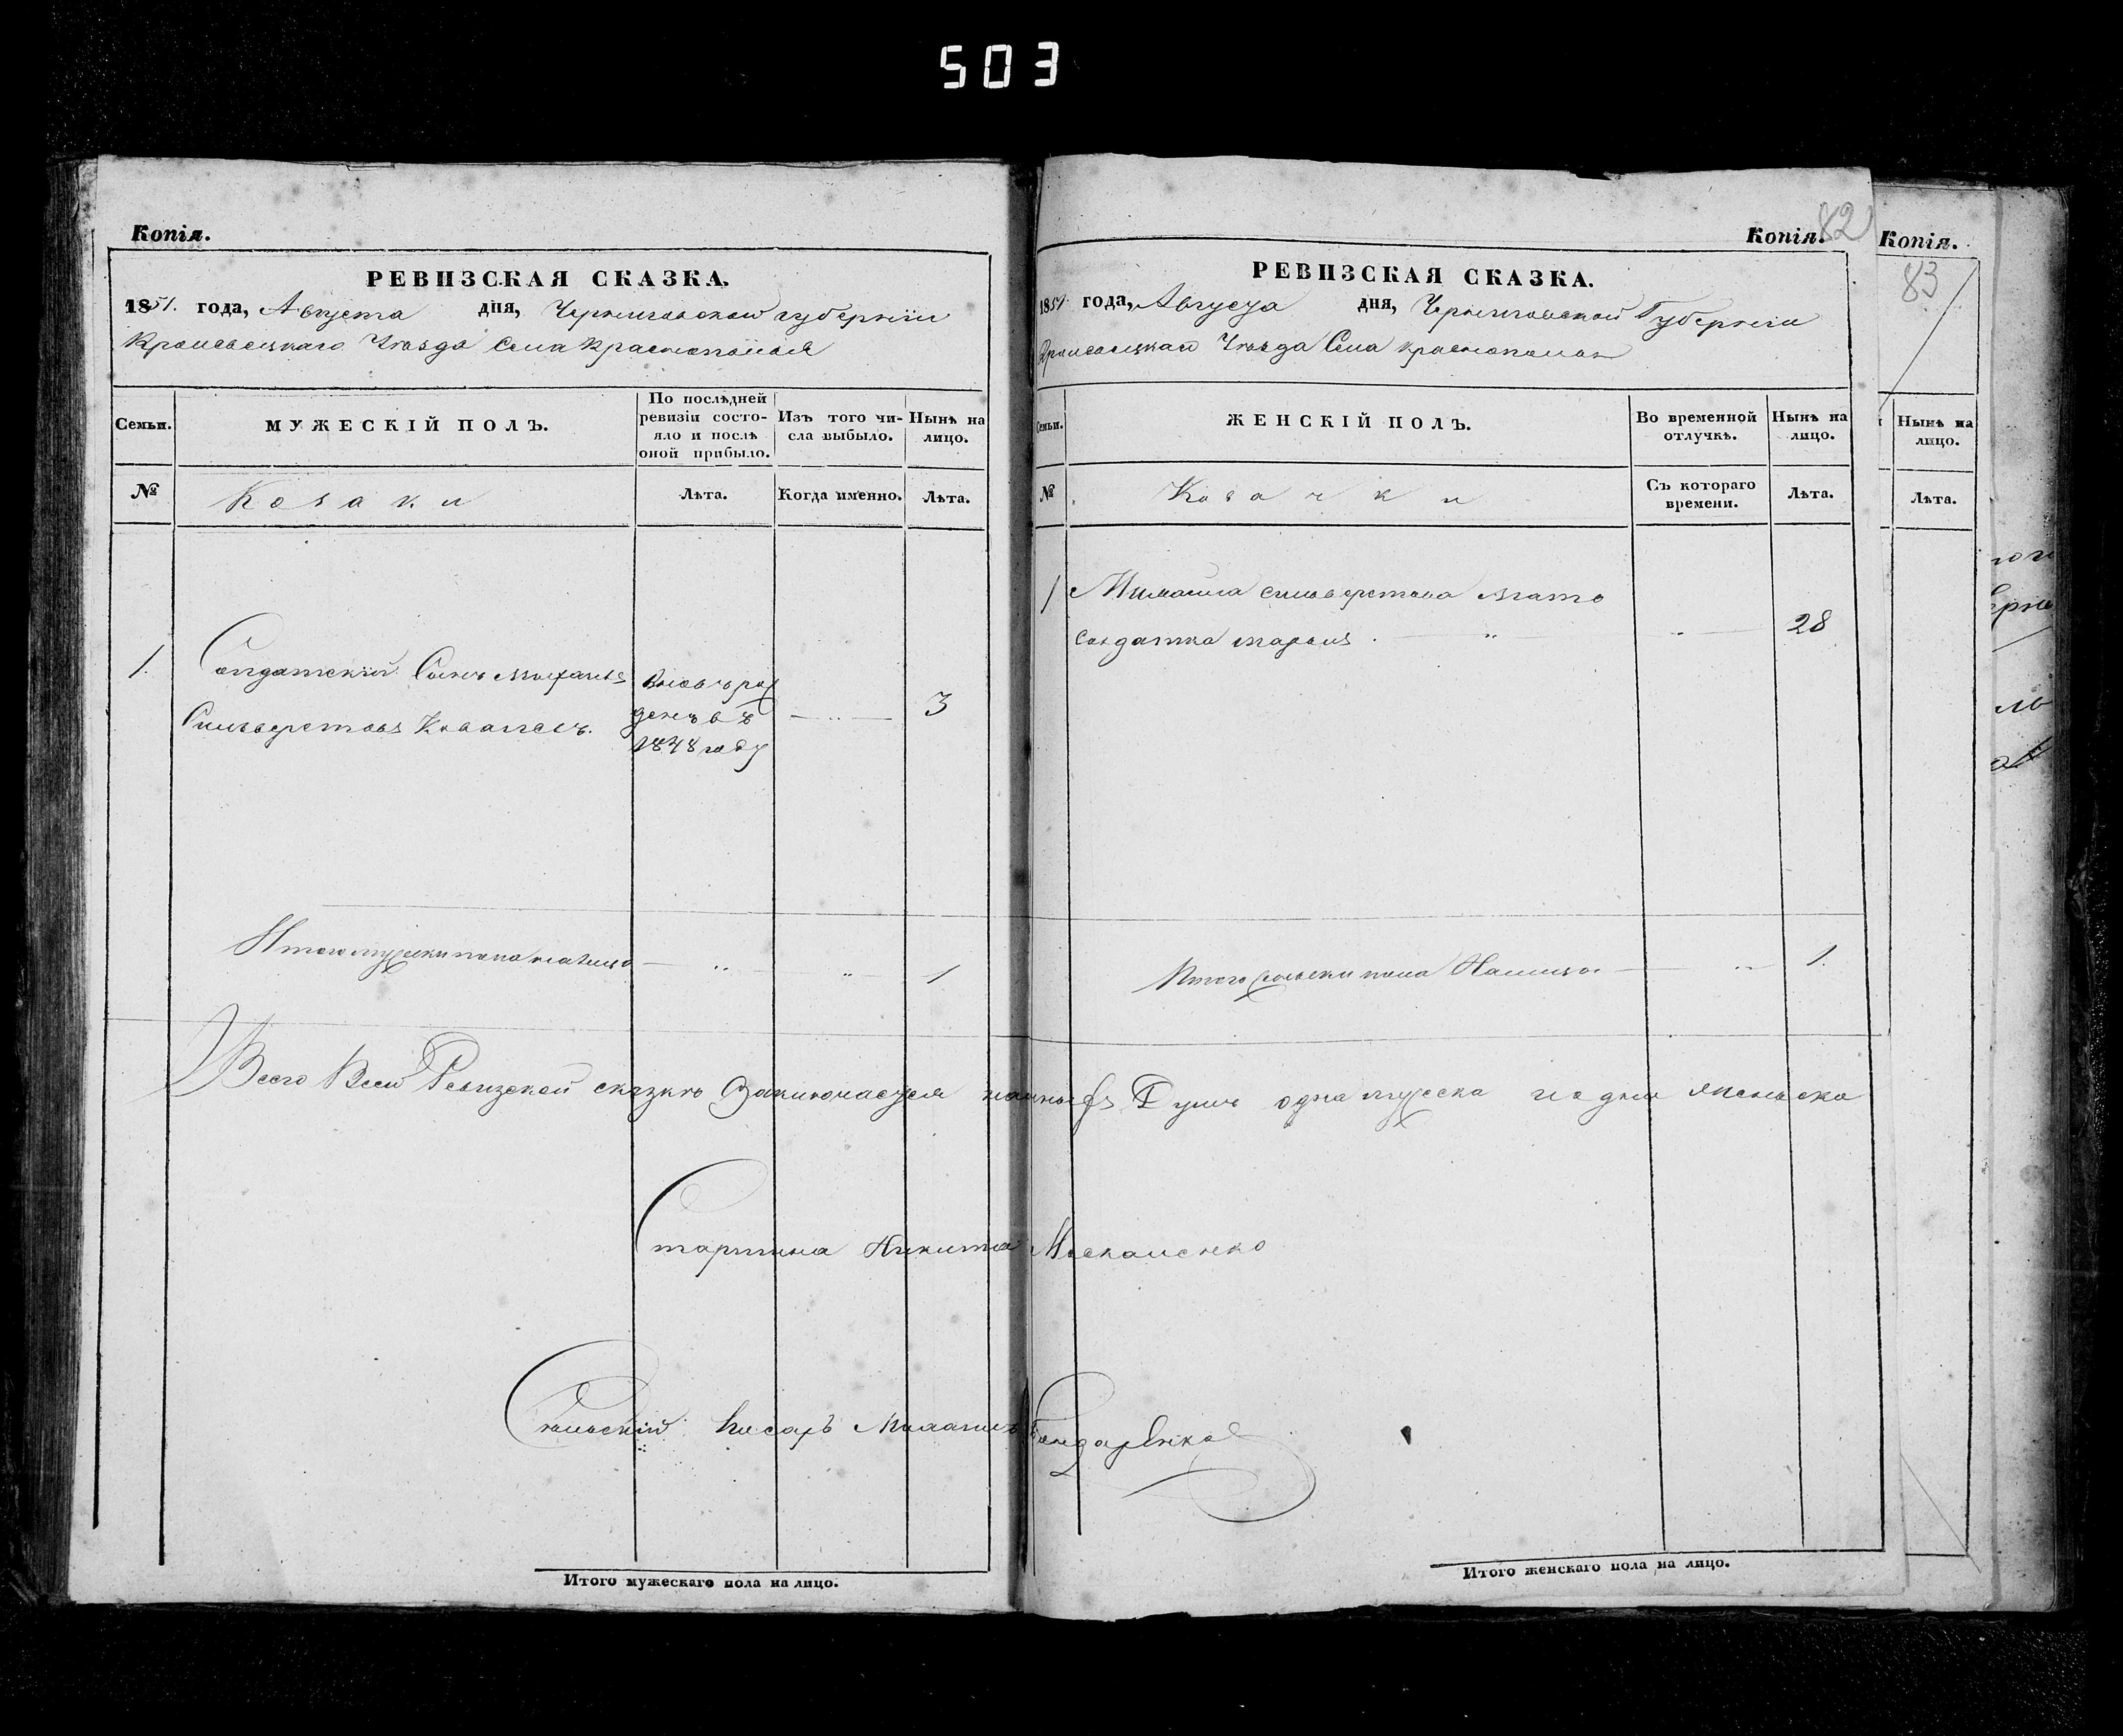 503
Копія.
РЕВИЗСКАЯ СКАЗКА.
1851. года, Августа дня, Черниговской губерніи
Кролевецкаго Уѣзда Села Краснополья
Семьи.
МУЖЕСКІЙ ПОЛЪ.
По послѣдней
ревизіи состо-
яло и послѣ
оной прибыло.
Изъ того чи-
сла выбыло.
Нынѣ на
лицо.
№
Козаки
Лѣта.
Когда именно.
Лѣта.
1. Солдатскій Сынъ
Сильверстовъ
вновь рож
денъ въ
1848 году
3
Итого мужеска пола на лицо 1
Копія.
82
РЕВИЗСКАЯ СКАЗКА.
1851. года, Августа дня, Черниговской Губерніи
Кролевецкаго Уѣзда Села Краснополья
Семьи.
ЖЕНСКІЙ ПОЛЪ.
Во временной
отлучкѣ.
Нынѣ на
лицо.
№
Козачки
Съ котораго
времени.
Лѣта.
1 Сильверстова мать
солдатка Марья 28
Итого женска пола На лицо 1.
Всего Въ сей Ревизской сказкѣ Заключается Душъ одна мужеска и одна женска
Старшина Никита Москаленко
Сельскій Писарь Бондаренко
Итого мужескаго пола на лицо.
Итого женскаго пола на лицо.
Копія.
83
Нынѣ на
лицо.
Лѣта.